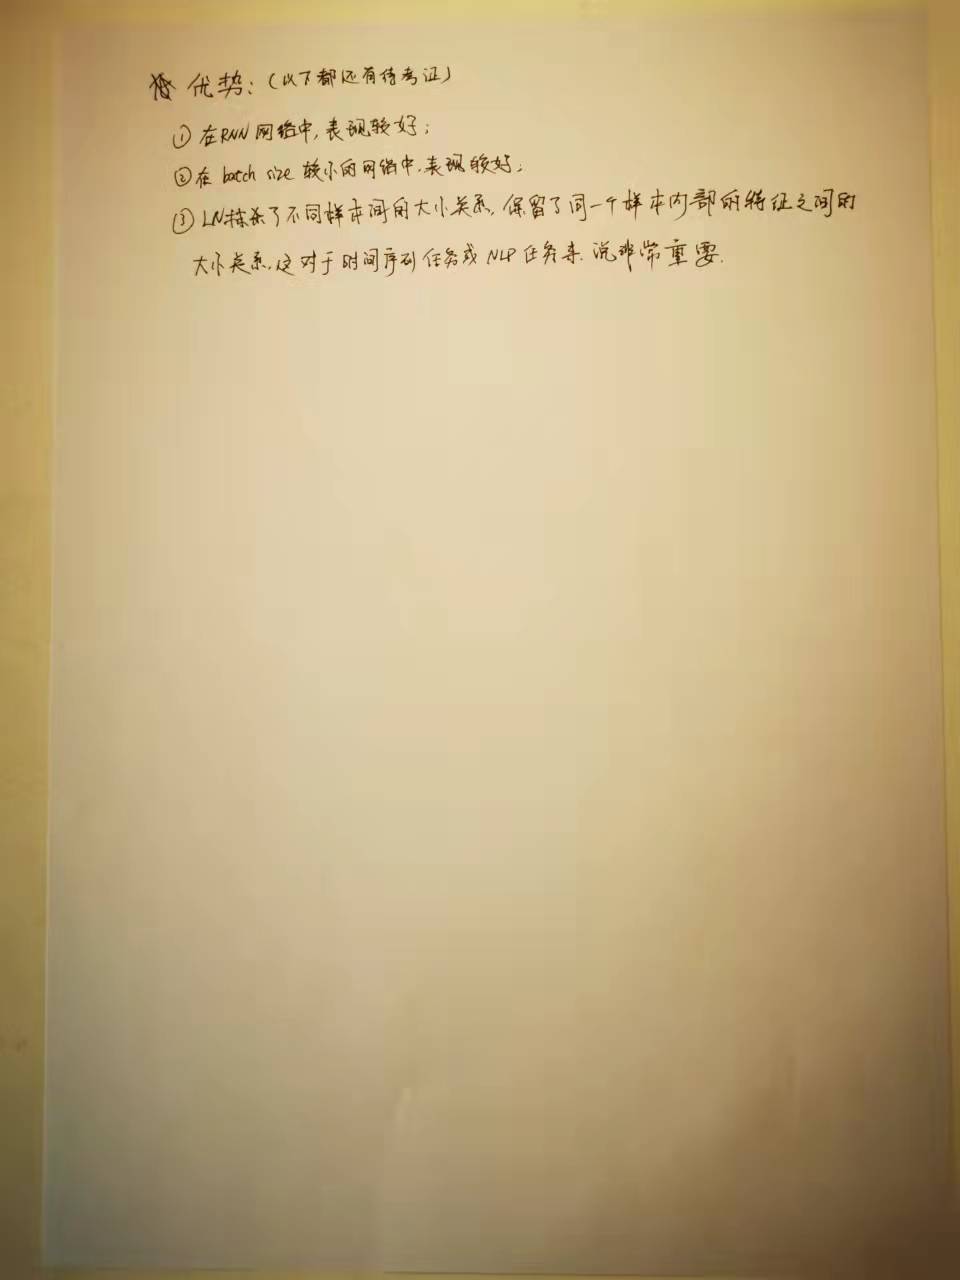 ☆ 优势:(以下都还有待考证)
① 在RNN网络中,表现较好;
② 在 batch size 较小的网络中,表现较好;
③ LN抹杀了不同样本间的大小关系,保留了同一个样本内部的特征之间的
大小关系,这对于时间序列任务或NLP任务来说非常重要.